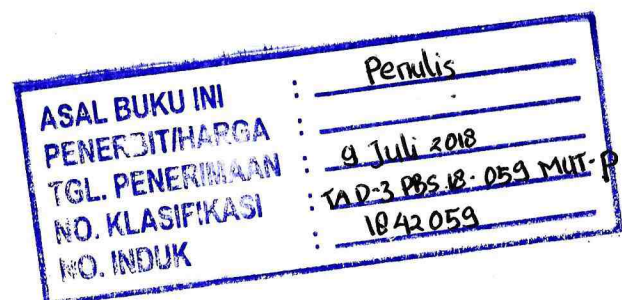 ASAL BUKU INI : Penulis
PENERBIT/HARGA : -
TGL. PENERIMAAN : 9 Juli 2018
NO. KLASIFIKASI : TA D-3 PBS.18-059 MUT-P
NO. INDUK : 1842059